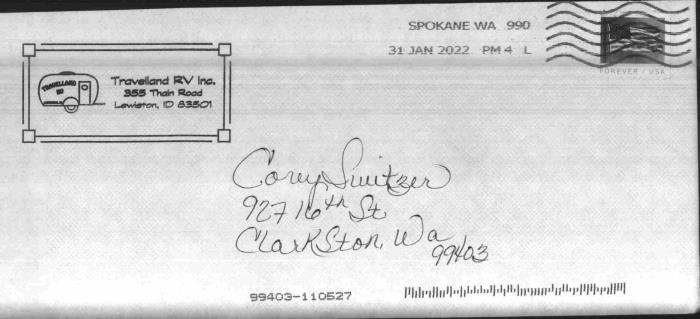 SPOKANE WA 990
31 JAN 2022 PM 4 L
FOREVER / USA
TRAVELLAND
RV
Travelland RV Inc.
355 Thain Road
Lewiston, ID 83501
Corey Switzer
927 16th St
Clarkston, Wa
99403
99403-110527